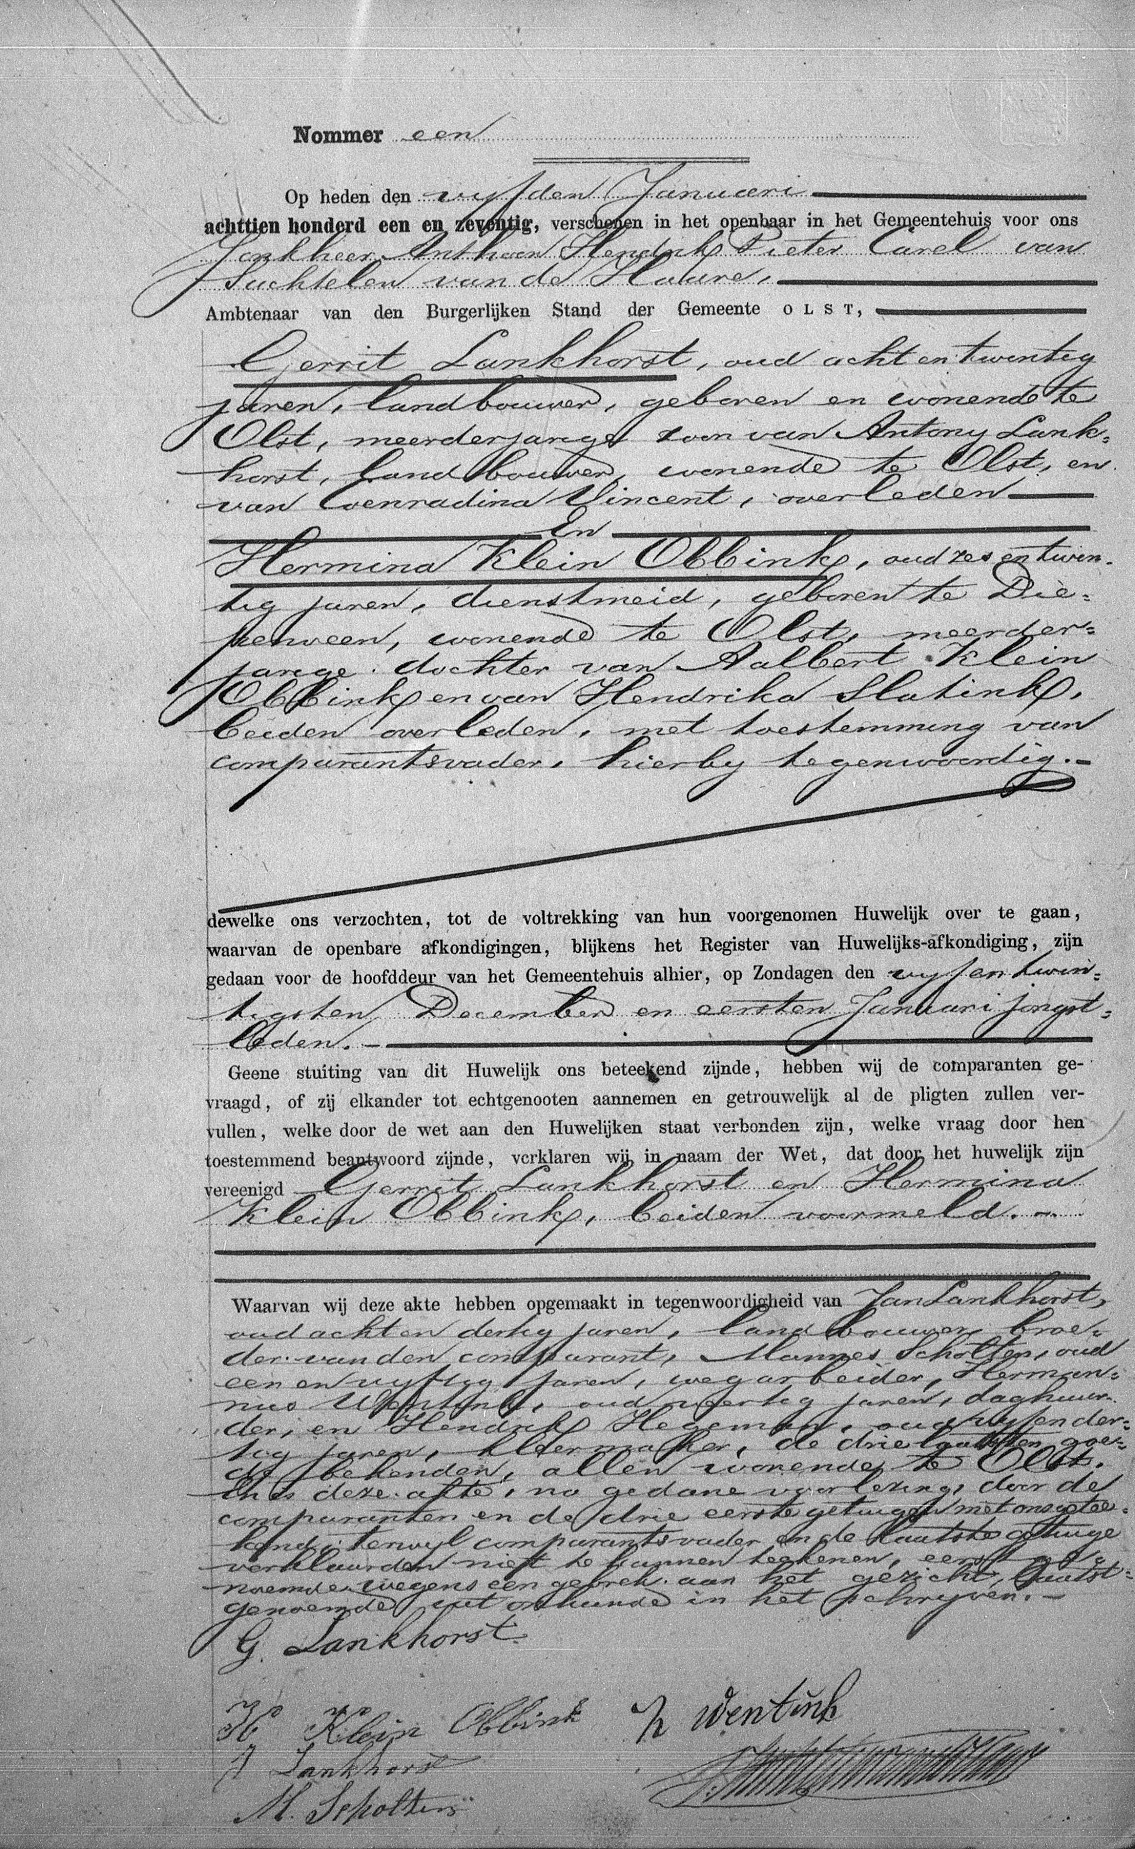 Nommer een
Op heden den vyfden Januari
achttien honderd een en zeventig, verschenen in het openbaar in het Gemeentehuis voor ons
Jonkheer Anthoon Hendrik Pieter Carel van
Suchtelen van de Haare,
Ambtenaar van den Burgerlijken Stand der Gemeente OLST,
Gerrit Lankhorst, oud acht en twintig
jaren, landbouwer, geboren en wonende te
Olst, meerderjarige zoon van Antony Lank=
horst, landbouwer, wonende te Olst, en
van Coenradina Vincent, overleden
En
Hermina Klein Obbink, oud zes en twin=
tig jaren, dienstmeid, geboren te Die=
penveen, wonende te Olst, meerder=
jarige dochter van Aalbert Klein
Obbink en van Hendrika Slatink,
beiden overleden, met toestemming van
comparantsvader, hierby tegenwoordig.
dewelke ons verzochten, tot de voltrekking van hun voorgenomen Huwelijk over te gaan,
waarvan de openbare afkondigingen, blijkens het Register van Huwelijks-afkondiging, zijn
gedaan voor de hoofddeur van het Gemeentehuis alhier, op Zondagen den vyf en twin=
tigsten December en eersten Januari jongst=
leden.
Geene stuiting van dit Huwelijk ons beteekend zijnde, hebben wij de comparanten ge-
vraagd, of zij elkander tot echtgenooten aannemen en getrouwelijk al de pligten zullen ver-
vullen, welke door de wet aan den Huwelijken staat verbonden zijn, welke vraag door hen
toestemmend beantwoord zijnde, verklaren wij in naam der Wet, dat door het huwelijk zijn
vereenigd Gerrit Lankhorst en Hermina
Klein Obbink, beiden voormeld.
Waarvan wij deze akte hebben opgemaakt in tegenwoordigheid van Jan Lankhorst,
oud acht en dertig jaren, landbouwer, broe=
der van den comparant, Mannes Scholten, oud
een en vyftig jaren, wegarbeider, Herman=
nus Wentink, oud veertig jaren, daghuur=
der, en Hendrik Hegeman, oud vyf en der=
tig jaren, kleermaker, de drie laatsten goe=
de bekenden, allen wonende te Olst.
En is deze akte, na gedane voorlezing, door de
comparanten en de drie eerste getuigen met ons getee=
kend; terwyl comparantsvader en de laatste getuige
verklaarden niet te kunnen teekenen, eerst ge=
noemde wegens een gebrek aan het gezicht, laatst=
genoemde uit onkunde in het schryven.
G. Lankhorst
H Klein Obbink
h Wentink
J Lankhorst
M. Scholten